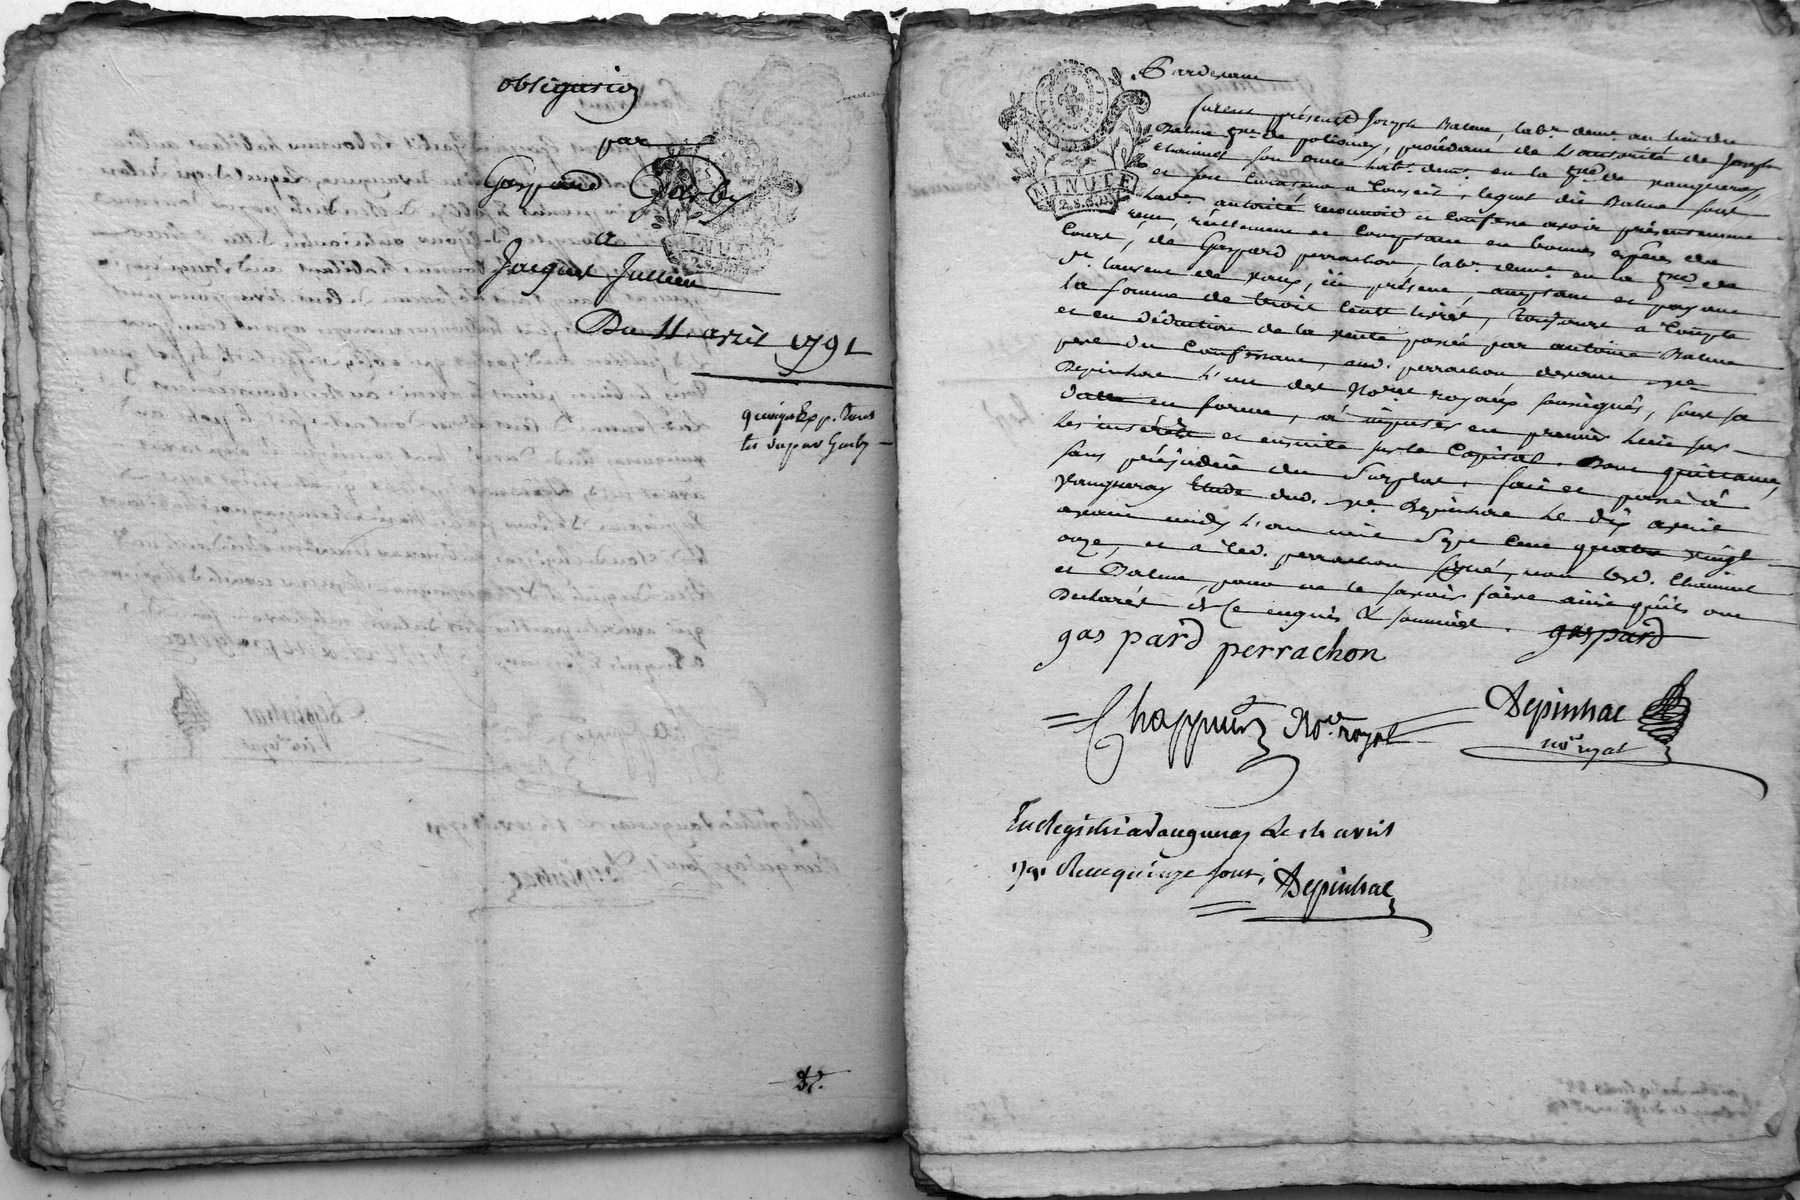 obligation
par
Gaspard Garby
a
Jacques Jullien
Du 11. avril 1791
quinze Exp.
Garby
D.
Pardevant
furent présent Joseph Balme, labr. demt. au lieu du
Balme psse. de polionay, procédant de l'autorité de Joseph
Chainut son oncle labr. demt. en la psse. de vaugneray,
et son curateur a Conseil, lequel dit Balme sous
lade. autorité reconnoit et Confesse avoir présentement
reçu, réellement et Comptant en bonnes espèces du
Cours, de Gaspard perrachon, labr. demt. en la psse. de
st. laurent de vaux, ici présent, aceptant et payant
la somme de trois Cents livres, toujours a Compte
et en déduction de la vente passée par antoine Balme
pere du Confessant, aud. perrachon devant me
Depinhac l'un des Nores. royaux soussignés, sous sa
datte en forme, à imputer en premier lieu sur
les intérêts et ensuite sur le Capital. Dont quittance,
sans préjudice du Surplus. fait et passé à
vaugneray Etude dud. me Depinhac le dix avril
avant midy l'an mil Sept Cent quatre vingt
onze, et a led. perrachon signé, non lesd. Chainut
et Balme, pour ne le savoir faire ainsi qu'ils ont
Declarés de ce enquis & sommés. gaspard
gas pard perrachon
Chappuis Nore. royal
Depinhac
nore. royal
Enregistré a Vaugneray Le 14 avril
1791 Recu quinze sous,
Depinhac
MINUTE
2.S.